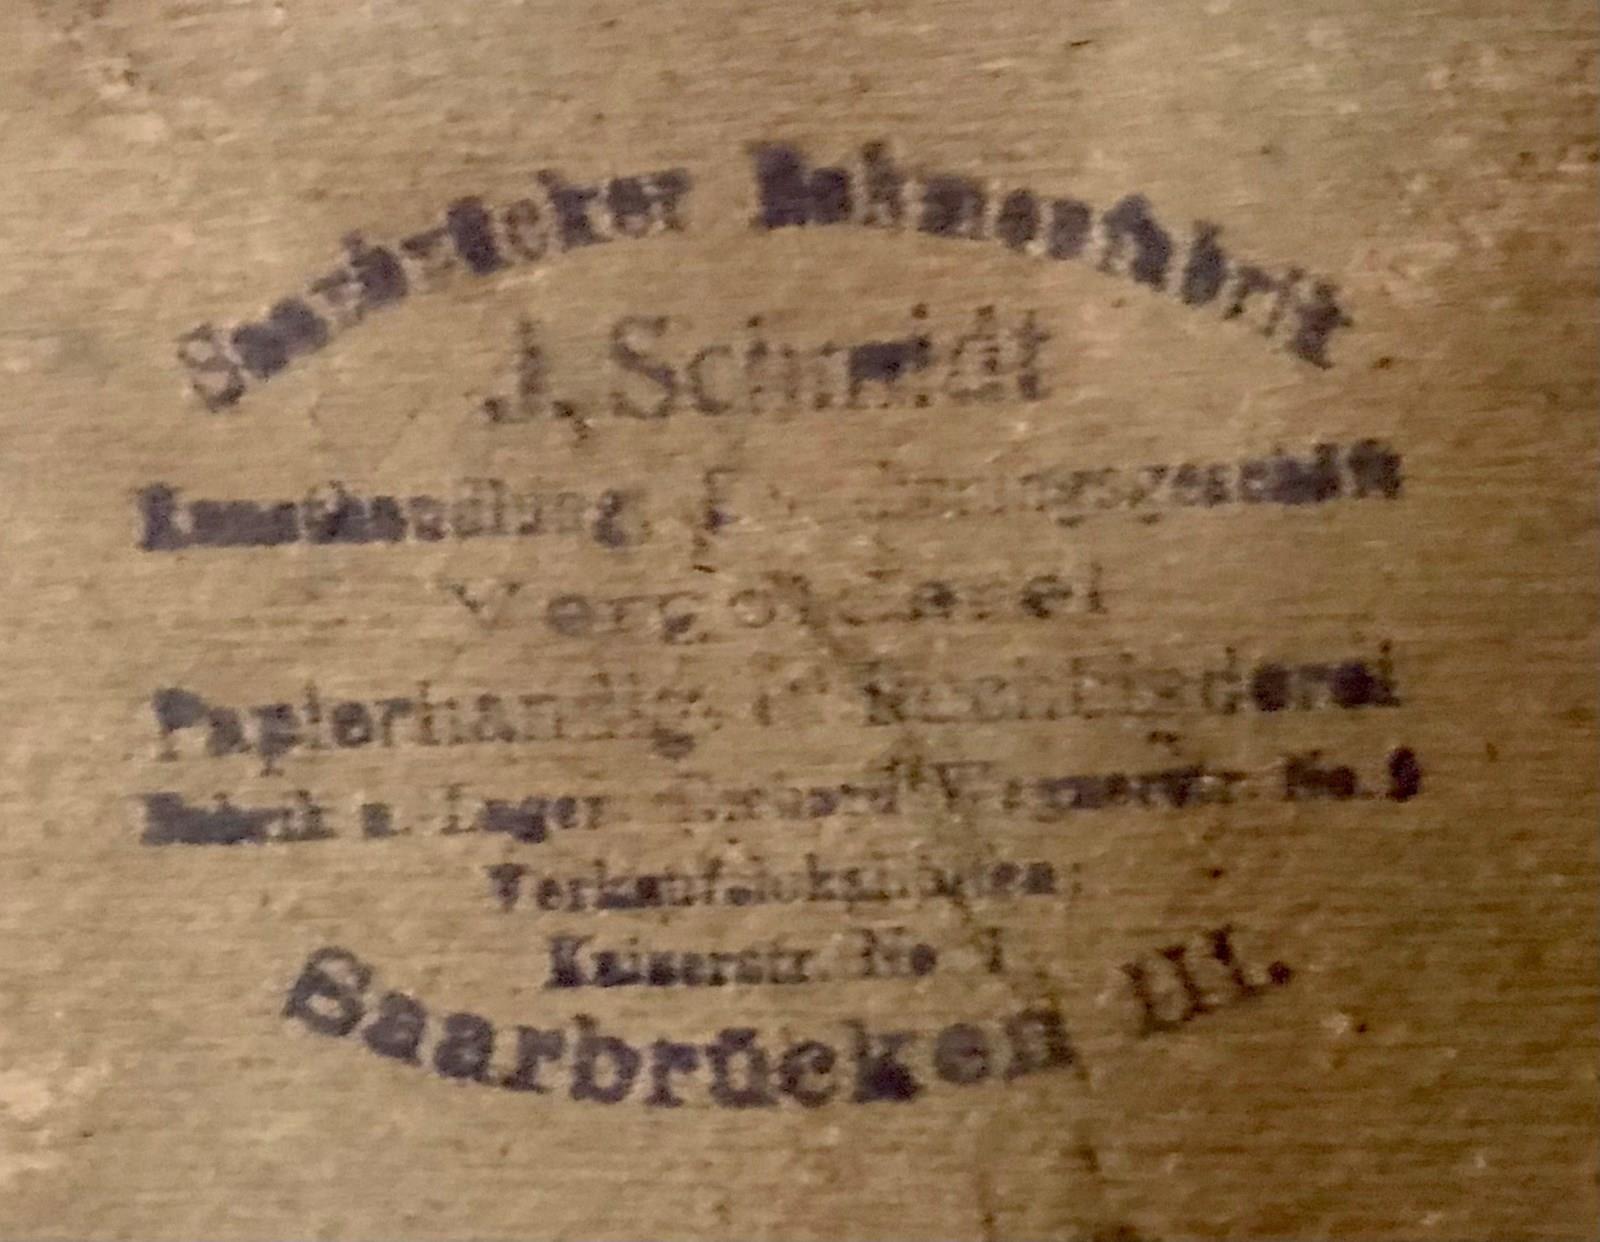 Saarbrücker Rahmenfabrik
J. Schmidt
Kunsthandlung, Einrahmungsgeschäft
Vergolderei
Papierhandlg. Buchbinderei
Fabrik u. Lager Richard Wagnerstr. No. 9
Verkaufslokalitäten:
Kaiserstr. No 1
Saarbrücken III.